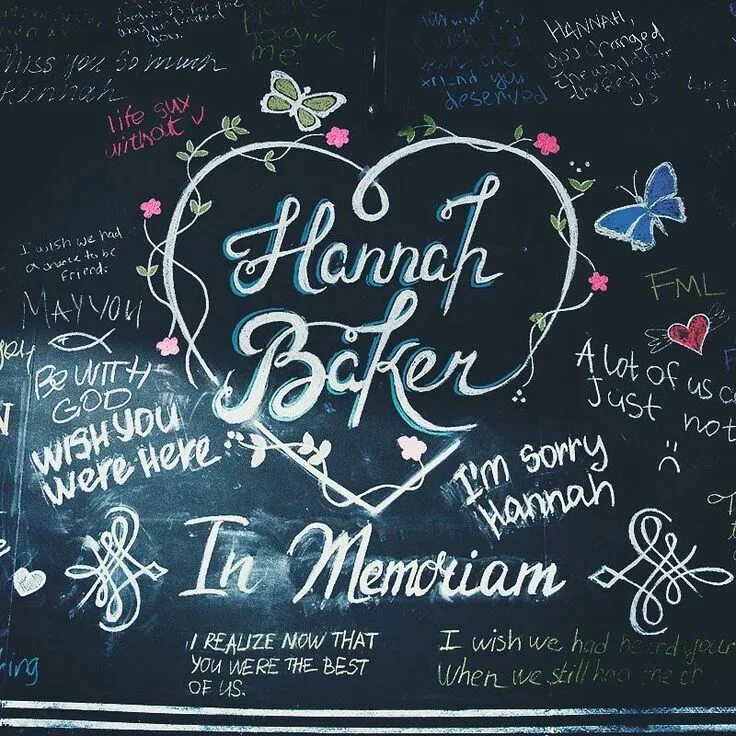 miss you so much
Hannah
forgive
me
friend you
deserved
HANNAH,
you changed
the world for
the Best of
us
life sux
without U
I wish we had
a chance to be
friend.
Hannah
Baker
MAY YOU
BE WITH
GOD
WISH YOU
WERE HERE
FML
A lot of us
Just not
I'm sorry
Hannah
In Memoriam
I REALIZE NOW THAT
YOU WERE THE BEST
OF US.
I wish we had heard your
When we still had the